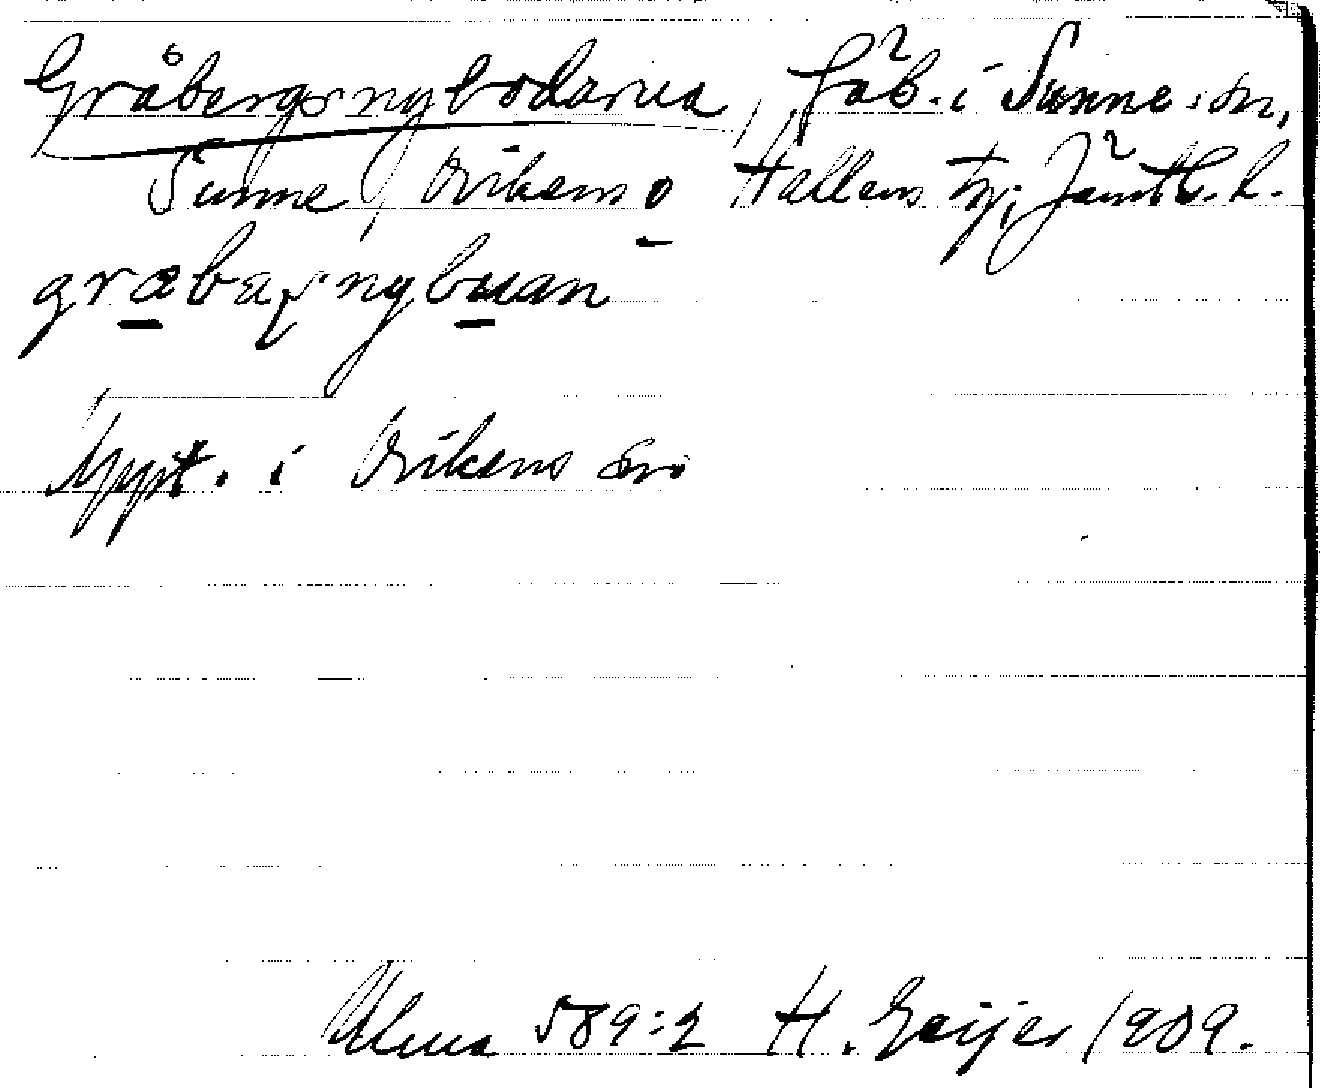 Gråbergsnybodarna, fäb. i Sunne sn,
Sunne, Ovikens o Hallens tg; Jämtl. l.
græbaʂnybuan
Uppt. i Ovikens sn
Ulma 589:2 H. Geijer 1909.